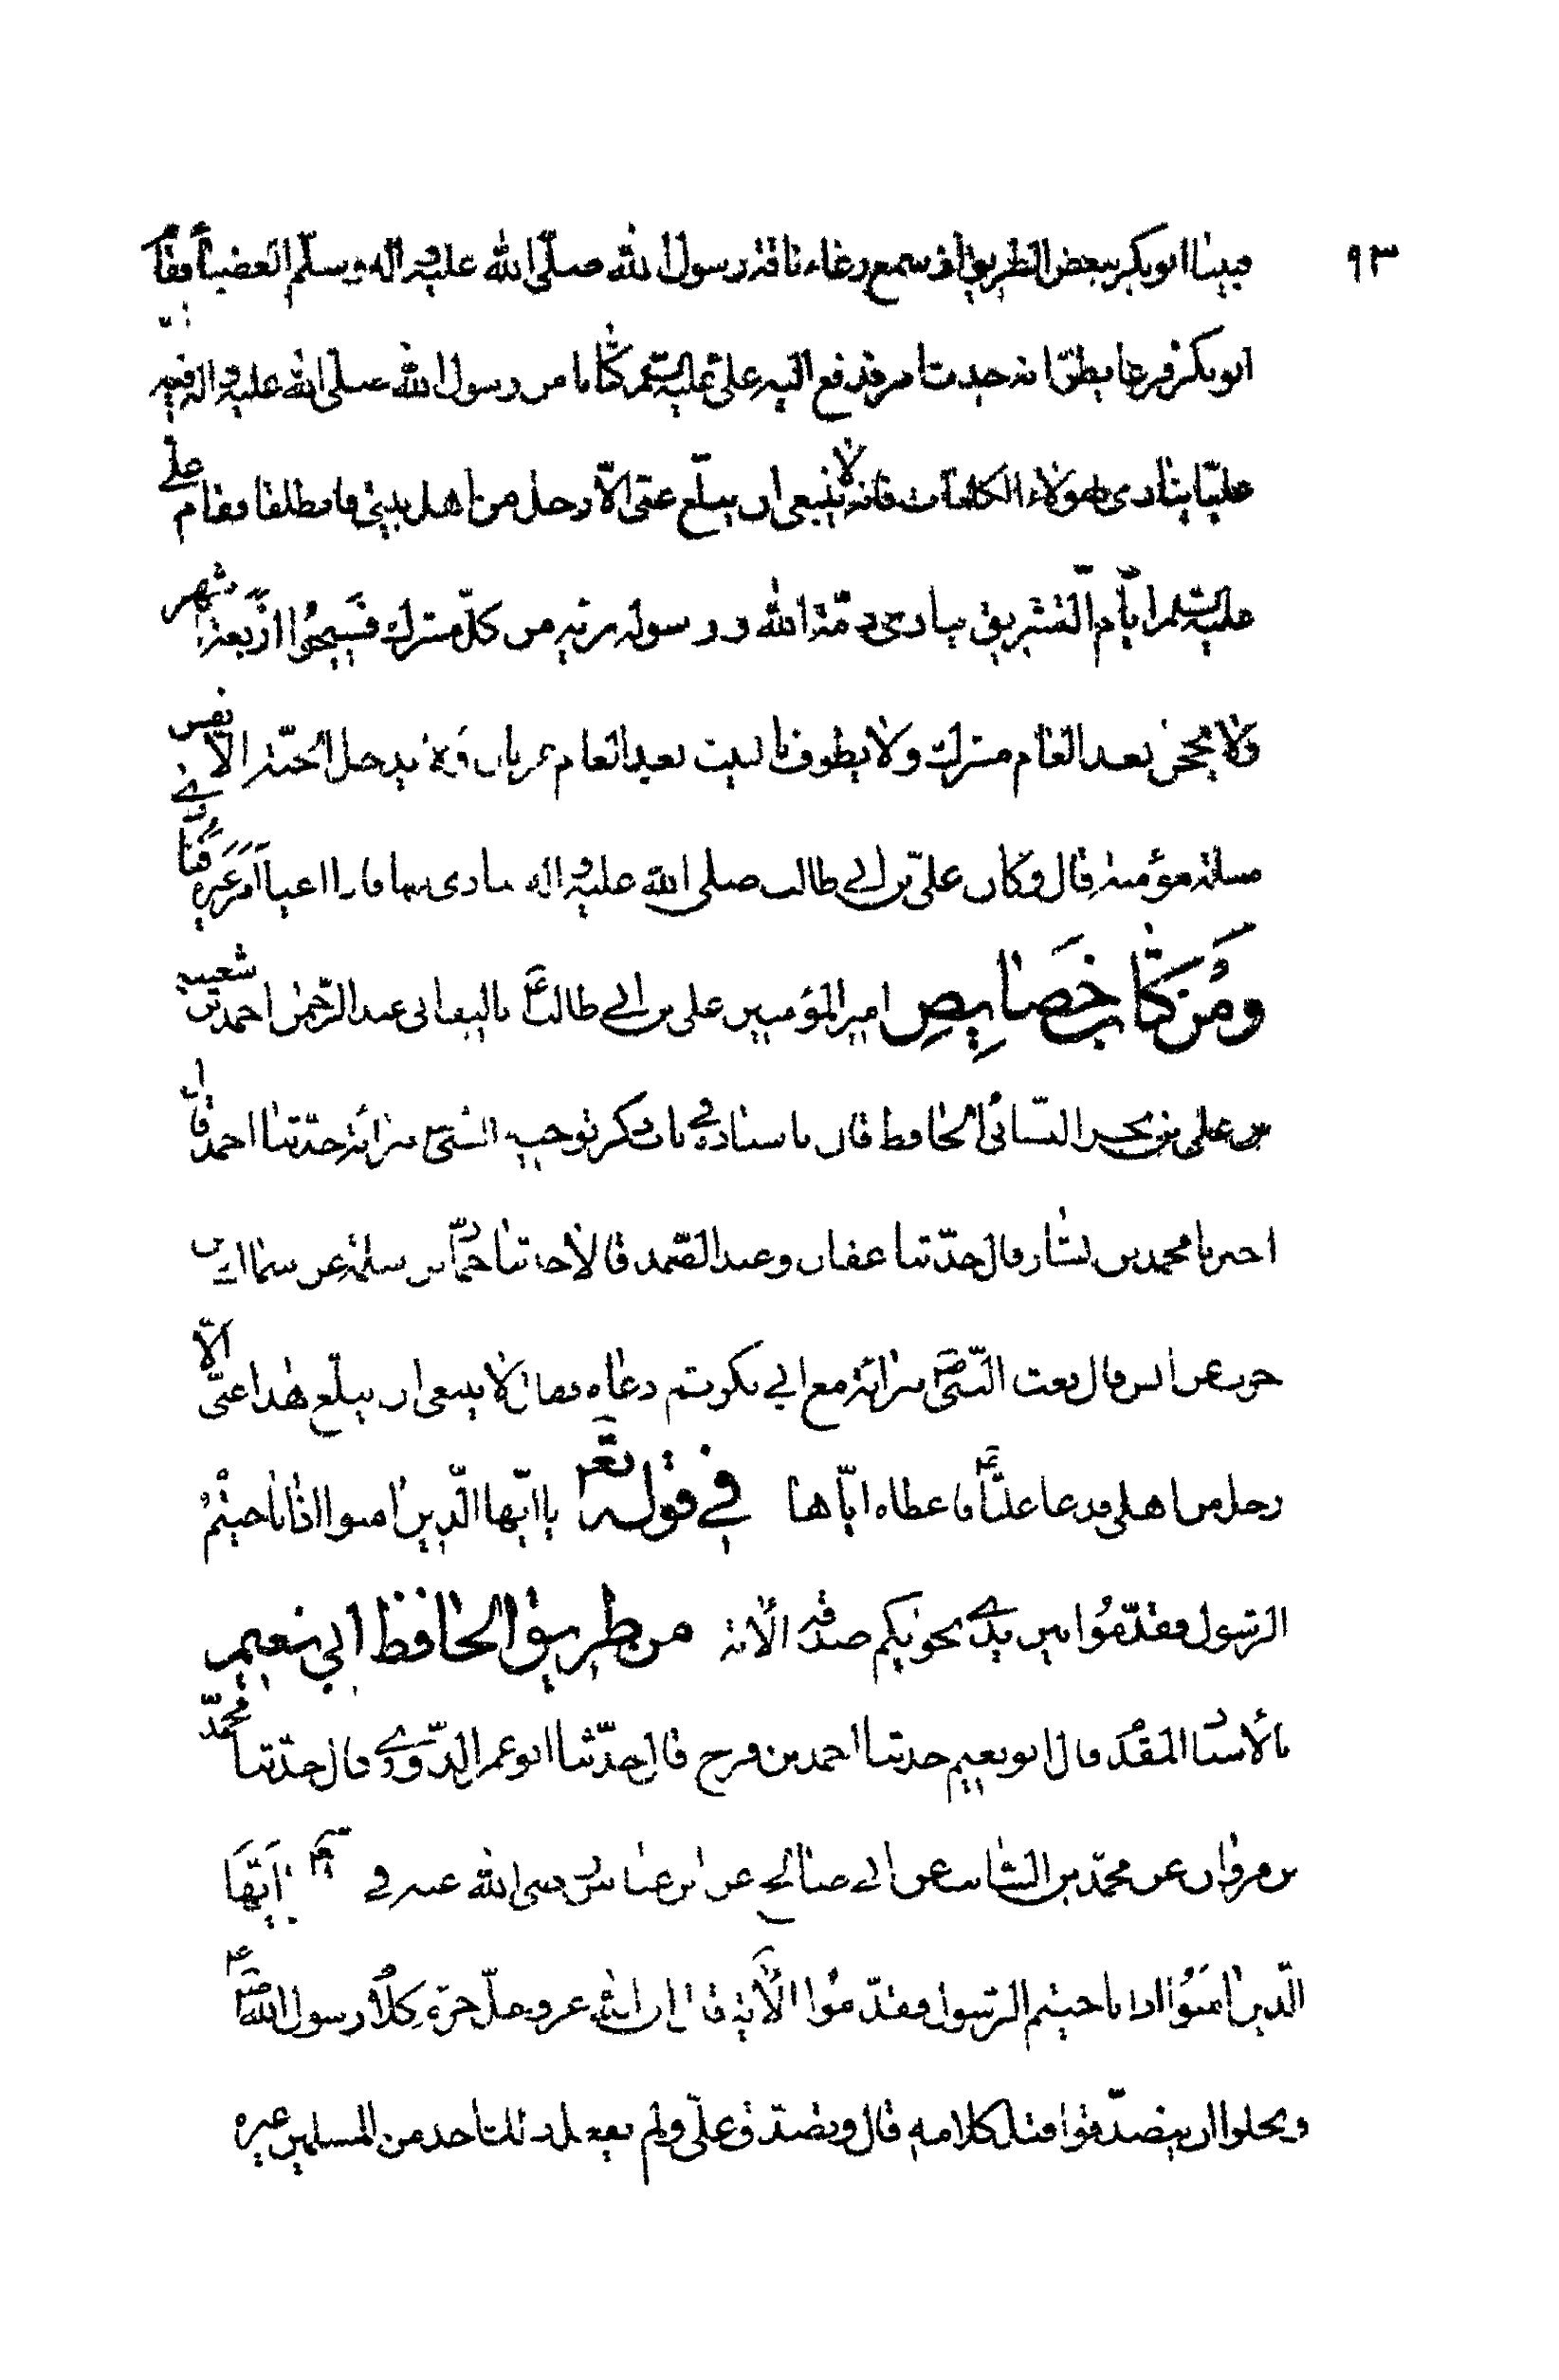 ٩٣
فبينا ابو بكر ببعض الطريق اذ سمع رغاء ناقة رسول الله صلّى الله عليه واله وسلّم العضباء فقام
ابو بكر فزعا يظنّ انه حدث امر فدفع اليه علىّ عليه السّلم كتابا من رسول الله صلى الله عليه واله فيه
عليّا ينادى بهؤلاء الكلمات فانه لا ينبغى ان يبلّغ عنّى الّا رجل من اهل بيتى فانطلقا فقام علي
عليه السلم ايام التّشريق ينادى ذمّة الله ورسوله بريه من كلّ مشرك فَسيحُوا ارْبعَة اشهر
ولا يحجن بعد العام مشرك ولا يطوف بالبيت بعد العام عريان ولا يدخل الجنّة الّا نفس
مسلمة مؤمنة قال وكان علىّ بن ابي طالب صلى الله عليه واله ينادى بها فاذا اعيا اَمَرَ غيره
وَمْن كتاب خَصايِصِ امير المؤمنين على بن ابي طالب ع تاليف ابى عبد الرّحمن احمد بن شعيب
بن على بن بحر النسّائى الحافظ قال باسناده في باب ذكر توجيه النبىّ ص برائة حدّثنا احمد قال
اخبرنا محمد بن بشار قال حدّثنا عفان وعبد الصّمد قالا حدثنا حمّاد بن سلمة عن سماك بن
حرب عن انس قال بعث النّبىّ ص برائة مع ابي بكر ثم دعاه فقال لا ينبغى ان يبلّغ هذا عنّى الّا
رجل من اهلى فدعا عليّا ع فاعطاه ايّاها في قوله تعالى يا ايّها الّذين امنوا اذا ناجيتُمُ
الرّسول فقدّمُوا بين يدي نجويكم صدقة الاية من طريق الحافظ ابي نعيم
بالاسناد المقدّم قال ابو نعيم حدثنا احمد بن فرج قال حدّثنا ابو عمر الدّوري قال حدّثنا محمّد
بن مروان عن محمّد بن السّائب عن ابي صالح عن ابن عبّاس رضى الله عنه في ايّها
الّذين امَنُوا اذا ناجيتم الرّسول فقدّمُوا الاَية قال ان الله عز وجلّ حرّم كلام رسول الله ص
وبخلوا ان يتصدّقوا قبل كلامه قال وتصدّق علىّ ولم يفعل ذلك احد من المسلمين غيره